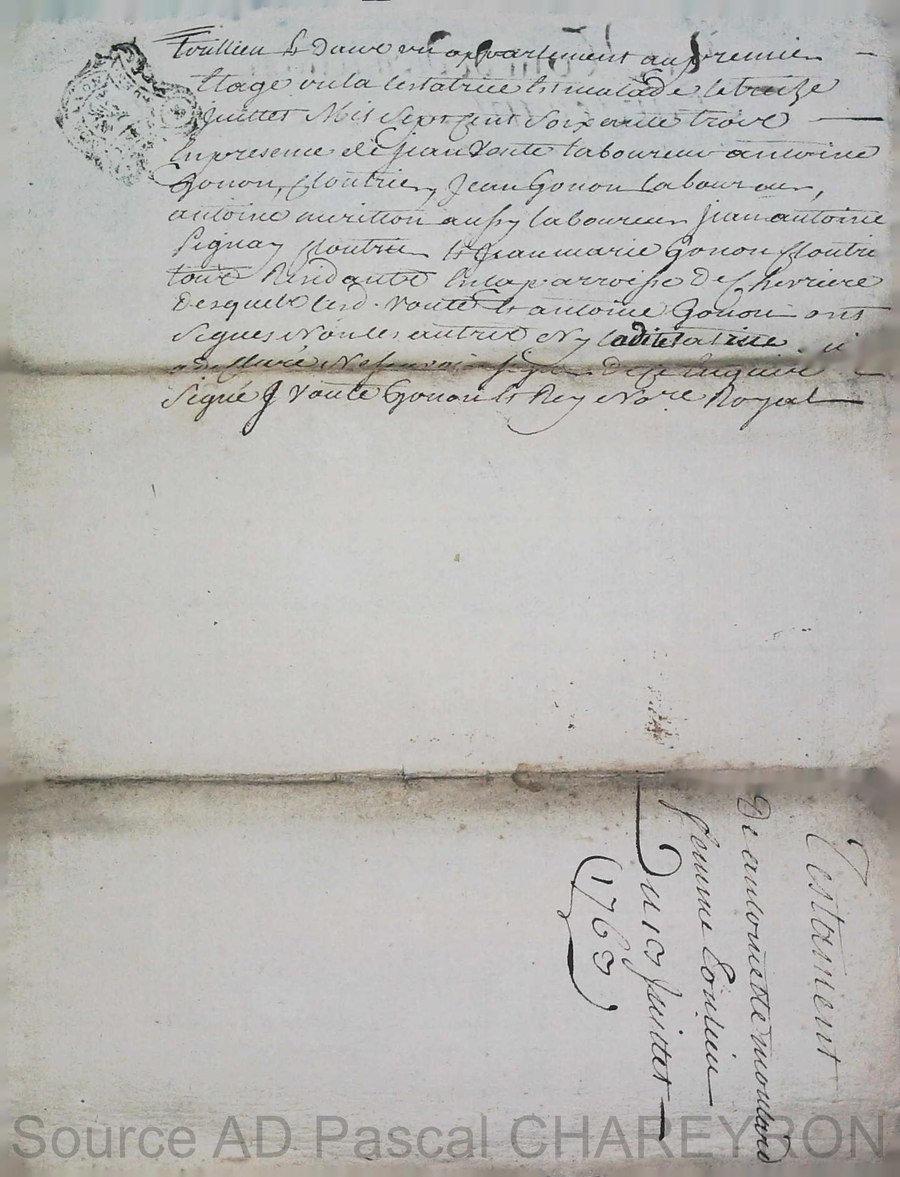 toullieu & dans un appartement au premier
Etage ou la testatrice est malade le treize
Juillet Mil sept cent soixante trois
En presence de Jean Vente laboureur antoine
Gonon, Jean Gonon laboureur,
antoine aussy laboureur jean antoine
Pignay & Jean marie Gonon
tous Residants en la parroisse de Cherriere
desquels led. Vente & antoine Gonon ont
signes Non les autres Ny laditte testatrice
Ne signer de ce Enquise
Signé J Vente Gonon & Rey No.re Royal
Testament
De antoinette moulard
femme
Du 13 Juillet
1763
Source AD Pascal CHAREYRON